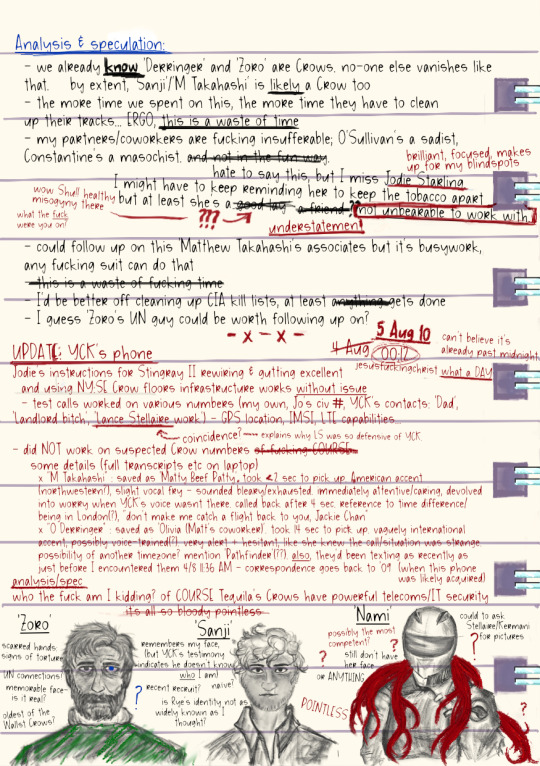 Analysis & speculation:
- we already know 'Derringer' and 'Zoro' are Crows. no-one else vanishes like
that. by extent, 'Sanji'/'M Takahashi' is likely a Crow too
- the more time we spent on this, the more time they have to clean
up their tracks... ERGO, this is a waste of time
- my partners/coworkers are fucking insufferable; O'Sullivan's a sadist,
Constantine's a masochist. and not in the fun way.
brilliant, focused, makes
up for my blindspots
hate to say this, but I miss Jodie Starling
I might have to keep reminding her to keep the tobacco apart
but at least she's a good lay a friend? not unbearable to work with.
wow Shull healthy
misogyny there
what the fuck
were you on!
???
understatement
- could follow up on this Matthew Takahashi's associates but it's busywork,
any fucking suit can do that
- this is a waste of fucking time
- I'd be better off cleaning up CIA kill lists, at least anything gets done
- I guess 'Zoro's UN guy could be worth following up on?
- x - x -
5 Aug 10
4 Aug 00:12
can't believe it's
already past midnight,
jesusfuckingchrist what a DAY
UPDATE: YCK's phone
Jodie's instructions for Stingray II rewiring & gutting excellent
and using NYSE Crow floors infrastructure works without issue
- test calls worked on various numbers (my own, Jo's civ #, YCK's contacts: 'Dad',
'Landlord bitch', 'lance Stellaire work') - GPS location, IMSI, LTE capabilities...
coincidence? explains why LS was so defensive of YCK
- did NOT work on suspected Crow numbers of fucking COURSE
some details (full transcripts etc on laptop)
x 'M Takahashi' : saved as 'Matty Beef Patty', took <2 sec to pick up, American accent
(northwestern?), slight vocal fry - sounded bleary/exhausted, immediately attentive/caring, devolved
into worry when YCK's voice wasn't there. called back after 4 sec. reference to time difference/
being in London(?), 'don't make me catch a flight back to you, Jackie Chan'
x 'O Derringer' : saved as 'Olivia (Matt's coworker)' took 14 sec to pick up, vaguely international
accent, possibly voice-trained(?), very alert + hesitant, like she knew the call/situation was strange.
possibility of another timezone? mention 'Pathfinder'(??) also, they'd been texting as recently as
just before I encountered them 4/8 11:36 AM - correspondence goes back to '09 (when this phone
was likely acquired)
analysis/spec
who the fuck am I kidding? of COURSE Tequila's Crows have powerful telecoms/IT security
it's all so bloody pointless
'Zoro'
scarred hands,
signs of torture
UN connections?
memorable face-
is it real?
oldest of the
Wallst Crows?
'Sanji'
remembers my face,
(but YCK's testimony
indicates he doesn't know
who I am)
naive?
? recent recruit?
is Rye's identity not as
widely known as I
thought?
'Nami'
possibly the most
competent?
? still don't have
her face
or ANYTHING
POINTLESS
could to ask
Stellaire/Kermani
for pictures
?
?
?
?